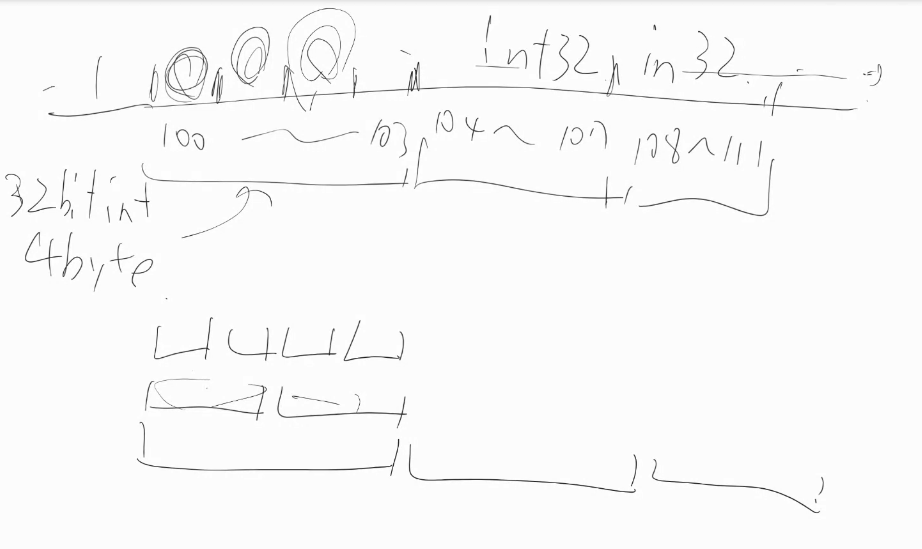 -1 int32 in32
100 ~ 103 104~ 107 108~111
32bit int
4byte